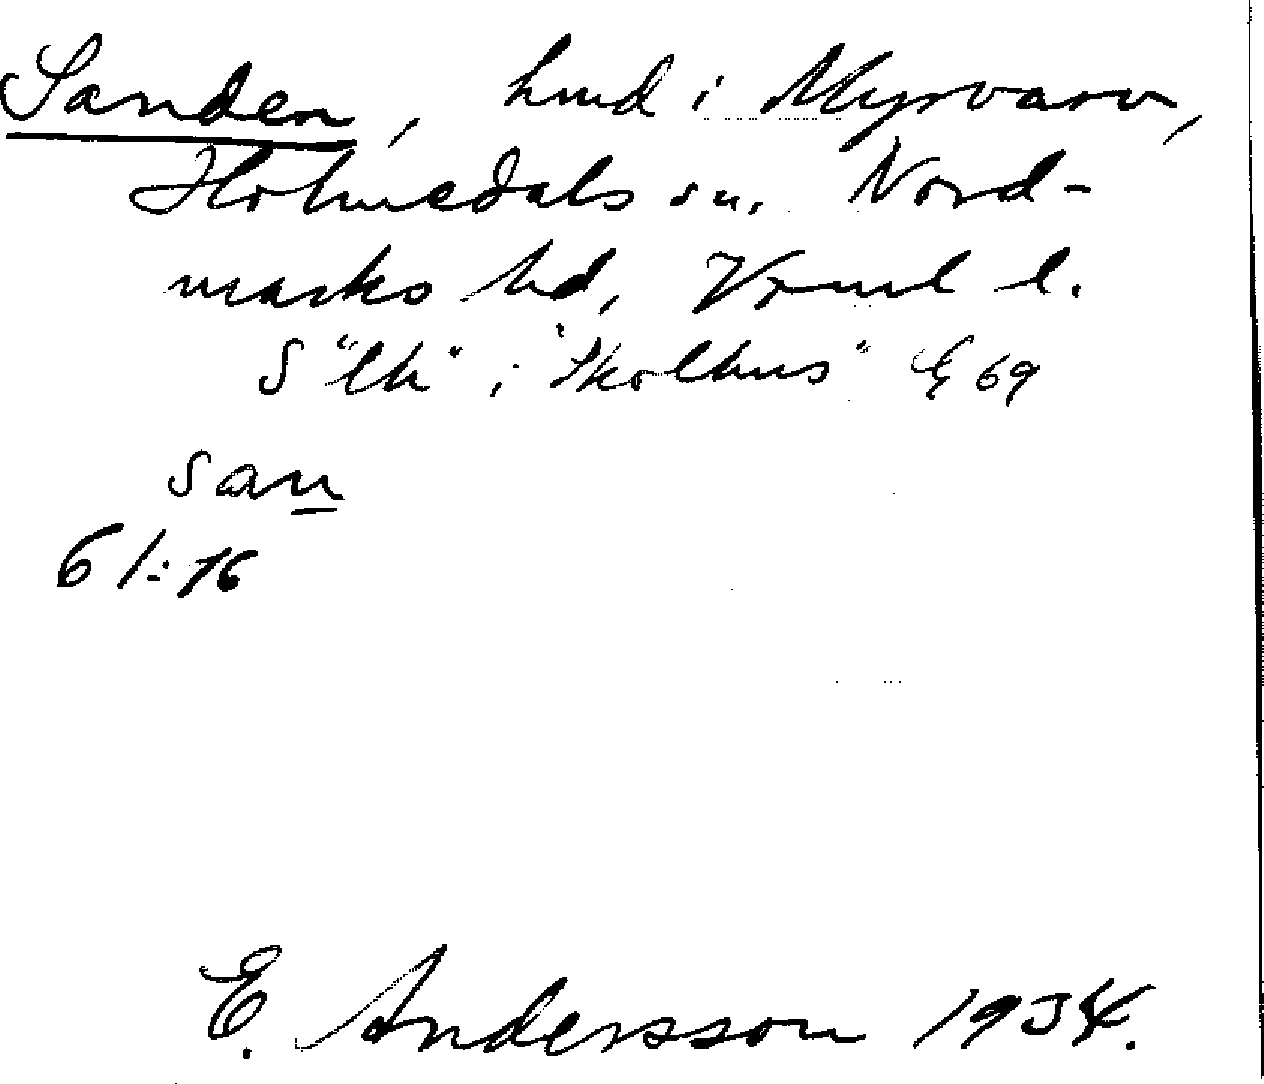 Sanden, hmd i Myrvarv,
Holmedals sn. Nord-
marks hd, Vrml l.
S "lk" i "skolhus" E 69
san
61:16
E. Andersson 1934.